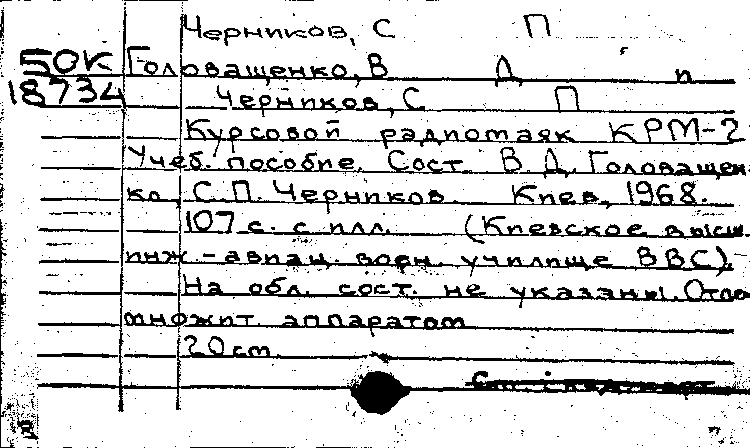 Черников, С П
50К Головащенко, В Д и
18734 Черников, С П
Курсовой радиомаяк КРМ-2
Учеб. пособие. Сост. В.Д. Головащен-
ко, С.П. Черников. Киев, 1968.
107 с. с илл. (Киевское высш.
инж-авиац. воен. училище ВВС).
На обл. сост. не указаны. Отпе
множит. аппаратом
20 cm.